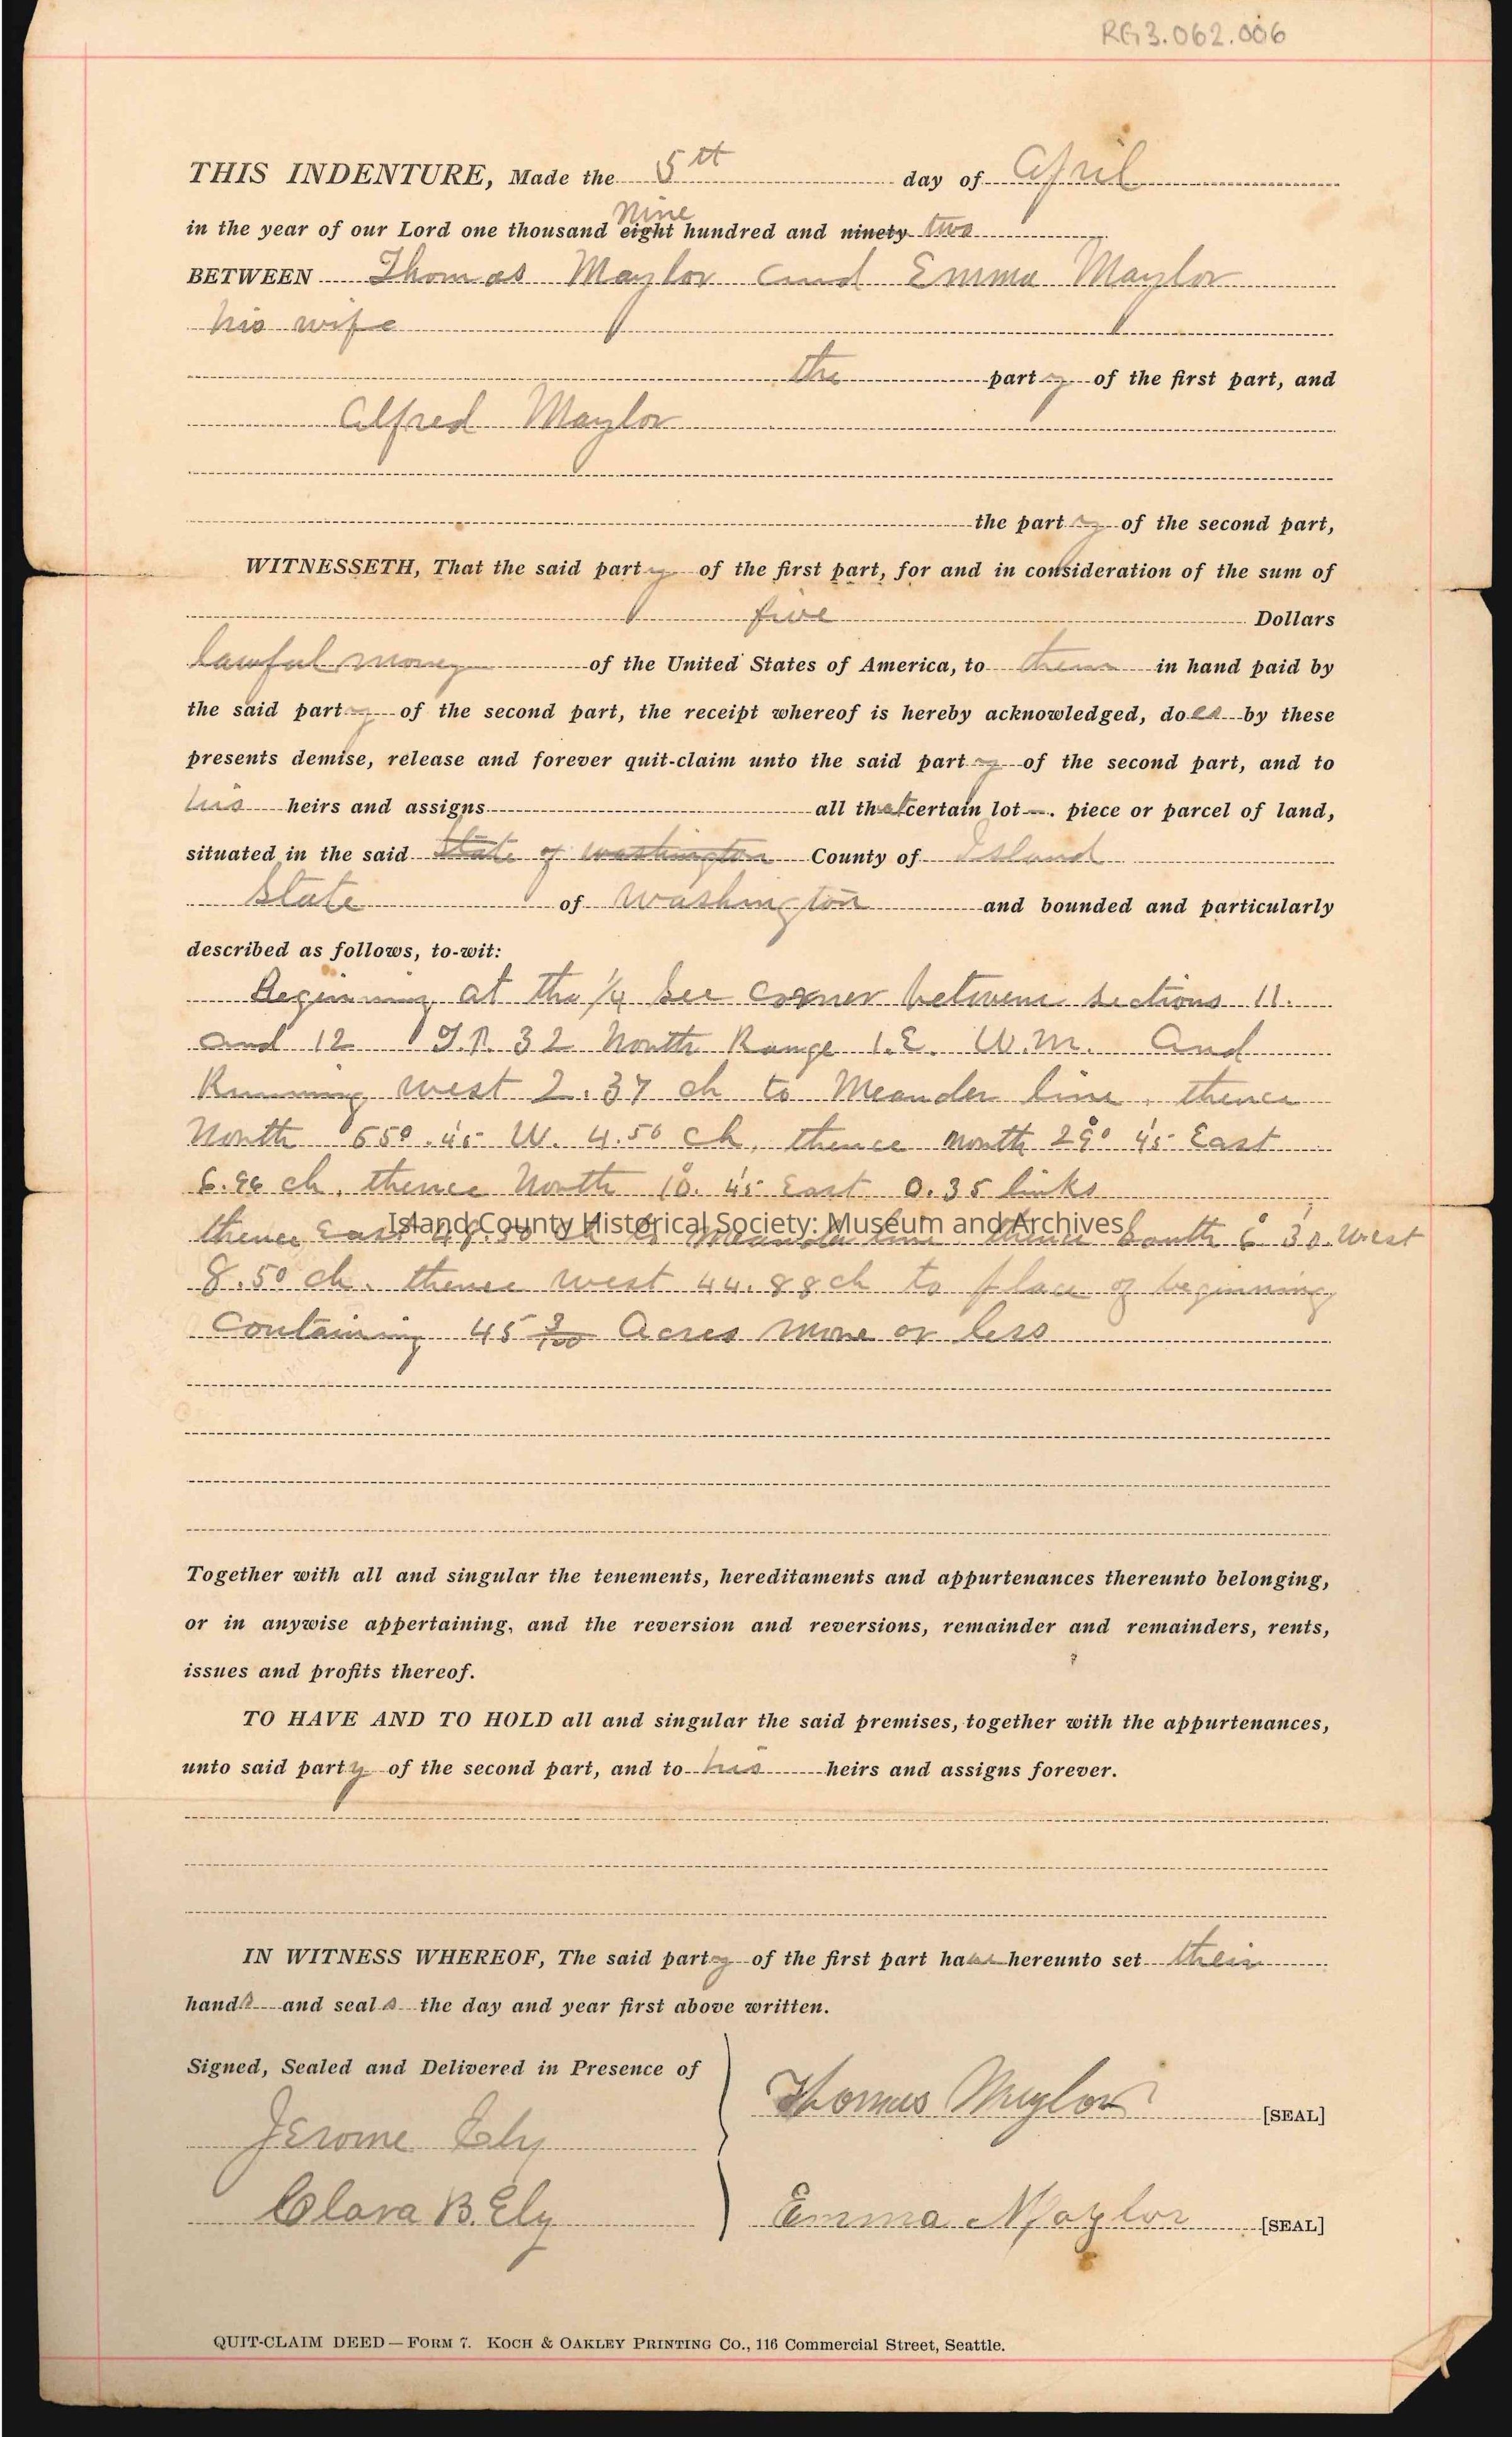 RG3.062.006
THIS INDENTURE, Made the 5th day of April
Nine
in the year of our Lord one thousand eight hundred and ninety two
BETWEEN Thomas Maylor and Emma Maylor
his wife
the party of the first part, and
Alfred Maylor
the party of the second part,
WITNESSETH, That the said party of the first part, for and in consideration of the sum of
five Dollars
lawful money of the United States of America, to them in hand paid by
the said party of the second part, the receipt whereof is hereby acknowledged, does by these
presents demise, release and forever quit-claim unto the said party of the second part, and to
his heirs and assigns all that certain lot, piece or parcel of land,
situated in the said State of Washington County of Island
State of Washington and bounded and particularly
described as follows, to-wit:
Beginning at the 1/4 sec corner between sections 11.
and 12 T.P. 32 North Range 1.E. W.M. And
Running west 2.37 ch to Meander line, thence
North W. 4.50 ch, thence north 29° 45 East
6.96 ch, thence North 10. 45 East 0.35 links
thence East Meander line thence South 6° 30. West
Island County Historical Society: Museum and Archives
8.50 ch. thence west 44.88 ch to place of beginning
Containing 45 Acres more or less
Together with all and singular the tenements, hereditaments and appurtenances thereunto belonging,
or in anywise appertaining, and the reversion and reversions, remainder and remainders, rents,
issues and profits thereof.
TO HAVE AND TO HOLD all and singular the said premises, together with the appurtenances,
unto said party of the second part, and to his heirs and assigns forever.
IN WITNESS WHEREOF, The said party of the first part have hereunto set their
hands and seals the day and year first above written.
Signed, Sealed and Delivered in Presence of
Thomas Maylor [SEAL]
Jerome Ely
Clara B. Ely
Emma Maylor [SEAL]
QUIT-CLAIM DEED — FORM 7. KOCH & OAKLEY PRINTING CO., 116 Commercial Street, Seattle.